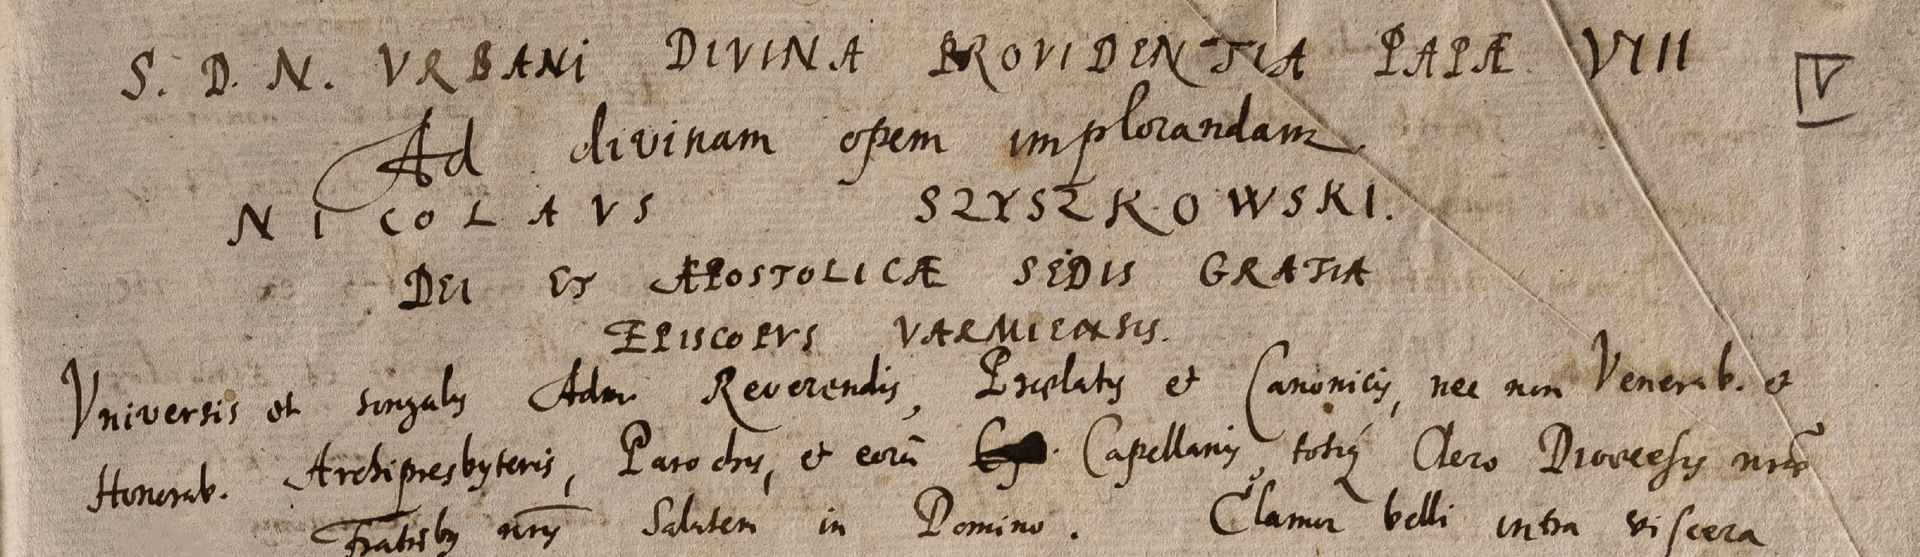 S. D. N. VRBANI DIVINA PROVIDENTIA PAPÆ VIII
V
Ad divinam opem implorandam
NICOLAVS SZYSZKOWSKI.
DEI ET APOSTOLICÆ SEDIS GRATIA
EPISCOPVS VARMIENSIS.
Vniversis et singulis Adm. Reverendis, Prælatis et Canonicis, nec non Venerab. et
Honorab. Archipresbyteris, Parochis, et eorū Capellanis totiq Clero Diœcesis nræ
Fratribus nris Salutem in Domino. Clamor belli intra viscera